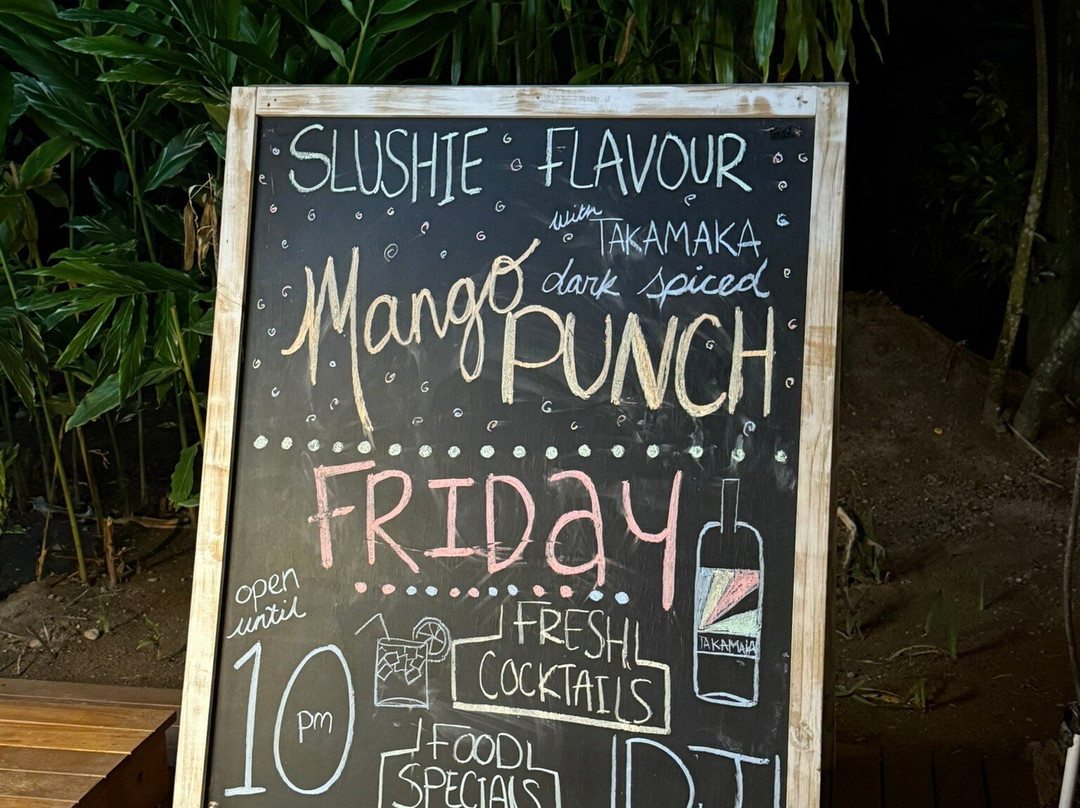 SLUSHIE FLAVOUR
with TAKAMAKA
dark spiced
Mango
PUNCH
FRIDAY
open
until
10
pm
FRESH
COCKTAILS
TAKAMAKA
FOOD
SPECIALS
DJ